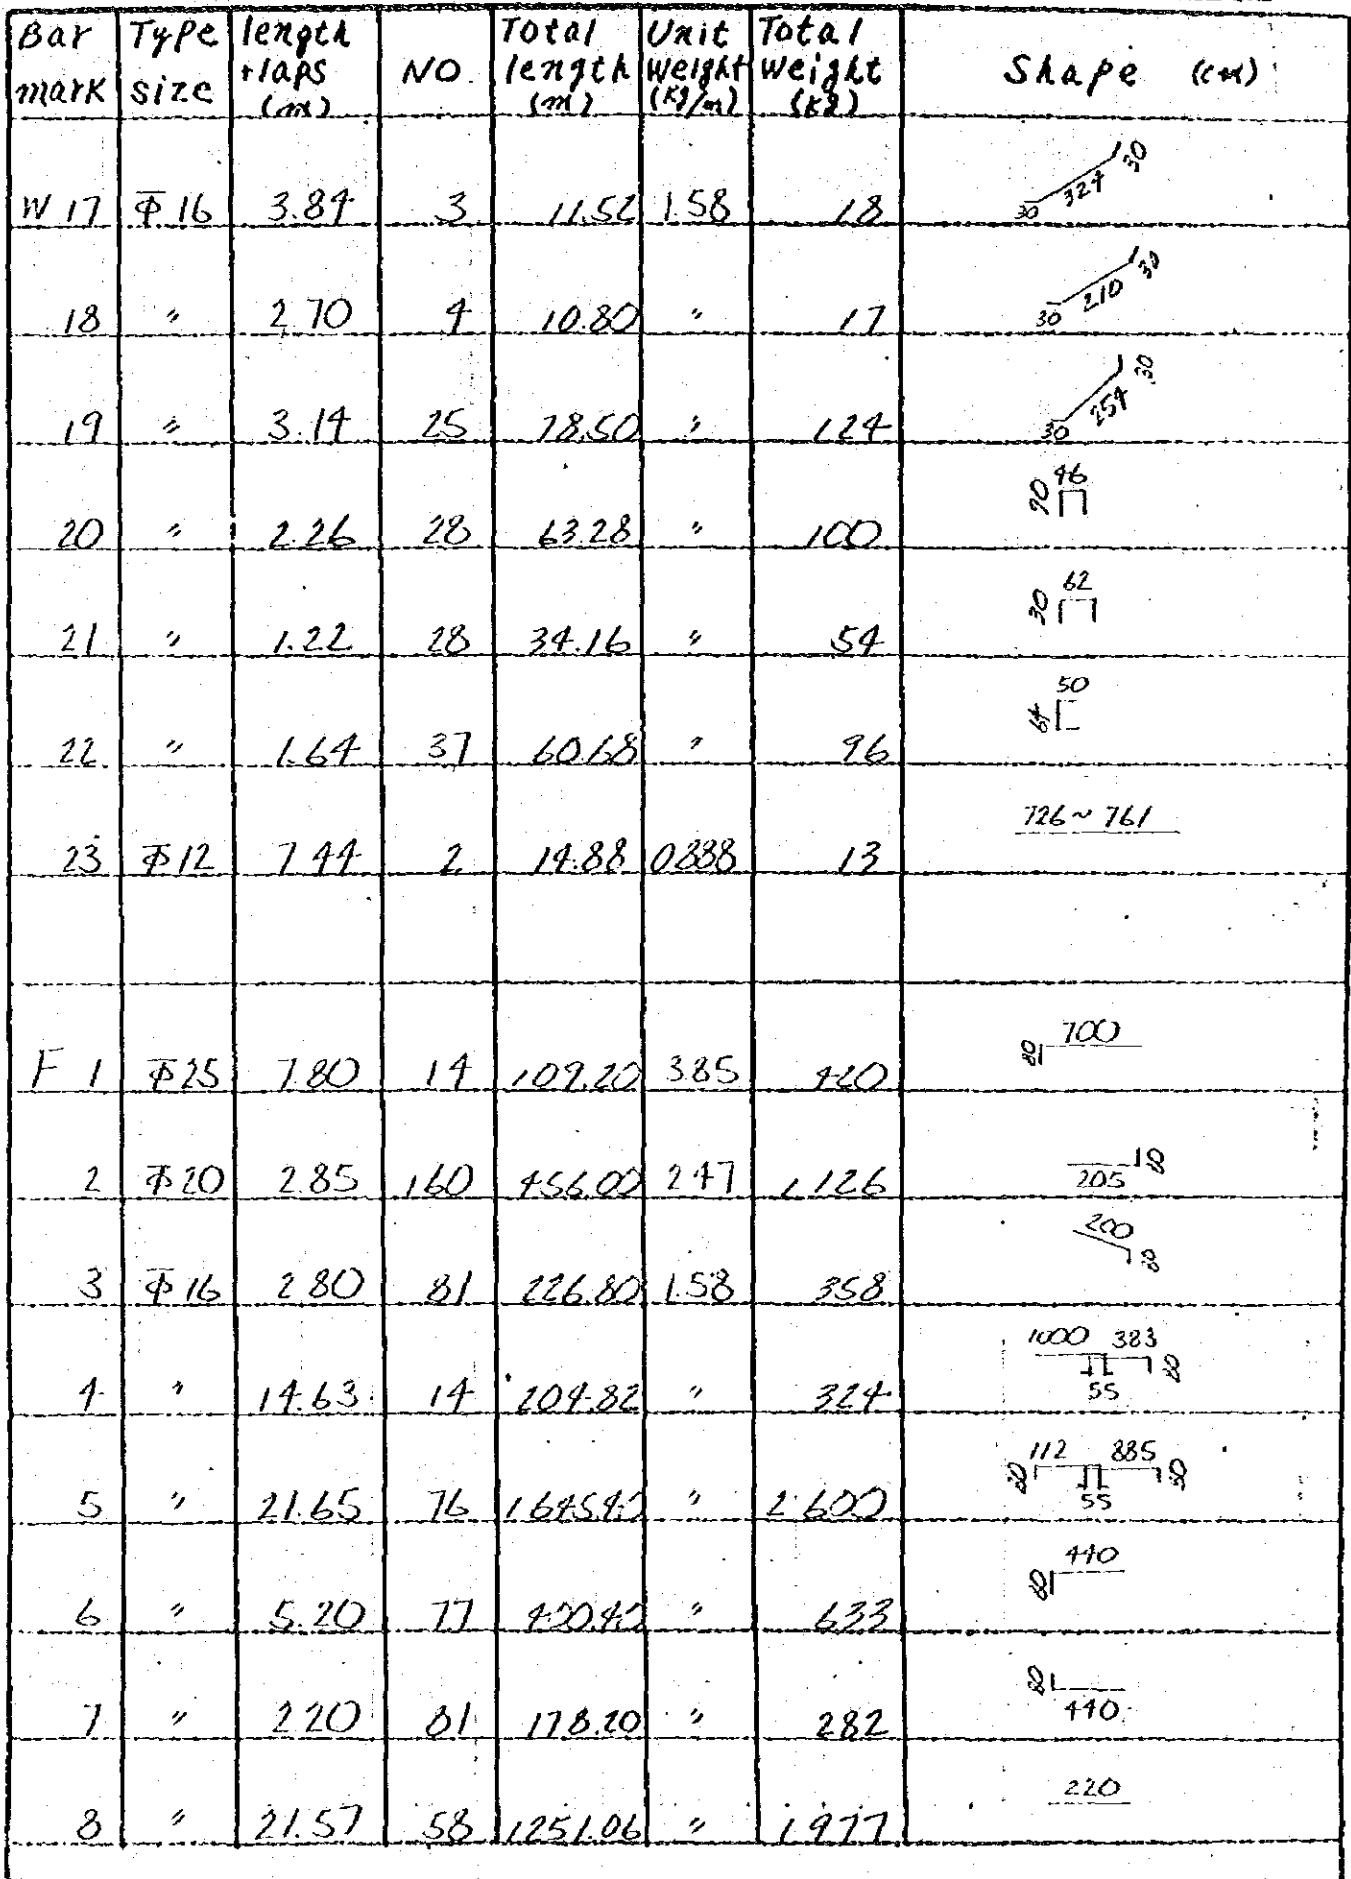 Bar mark Type size length +laps (m) NO. Total length (m) Unit weight (kg/m) Total weight (kg) Shape (cm)
W 17 Φ 16 3.84 3 11.52 1.58 18 30 324 30
18 〃 2.70 4 10.80 〃 17 30 210 30
19 〃 3.14 25 78.50 〃 124 30 254 30
20 〃 2.26 28 63.28 〃 100 90 46
21 〃 1.22 28 34.16 〃 54 30 62
22 〃 1.64 37 60.68 〃 96 64 50
23 Φ 12 7.44 2 14.88 0.888 13 726~761
F 1 Φ 25 7.80 14 109.20 3.85 420 80 700
2 Φ 20 2.85 160 456.00 2.47 1,126 205 80
3 Φ 16 2.80 81 226.80 1.58 358 200 80
4 〃 14.63 14 204.82 〃 324 1000 383 80 55
5 〃 21.65 76 1,645.40 〃 2,600 112 885 55
6 〃 5.20 77 400.40 〃 633 80 440
7 〃 2.20 81 178.20 〃 282 80 440
8 〃 21.57 58 1,251.06 〃 1,977 220